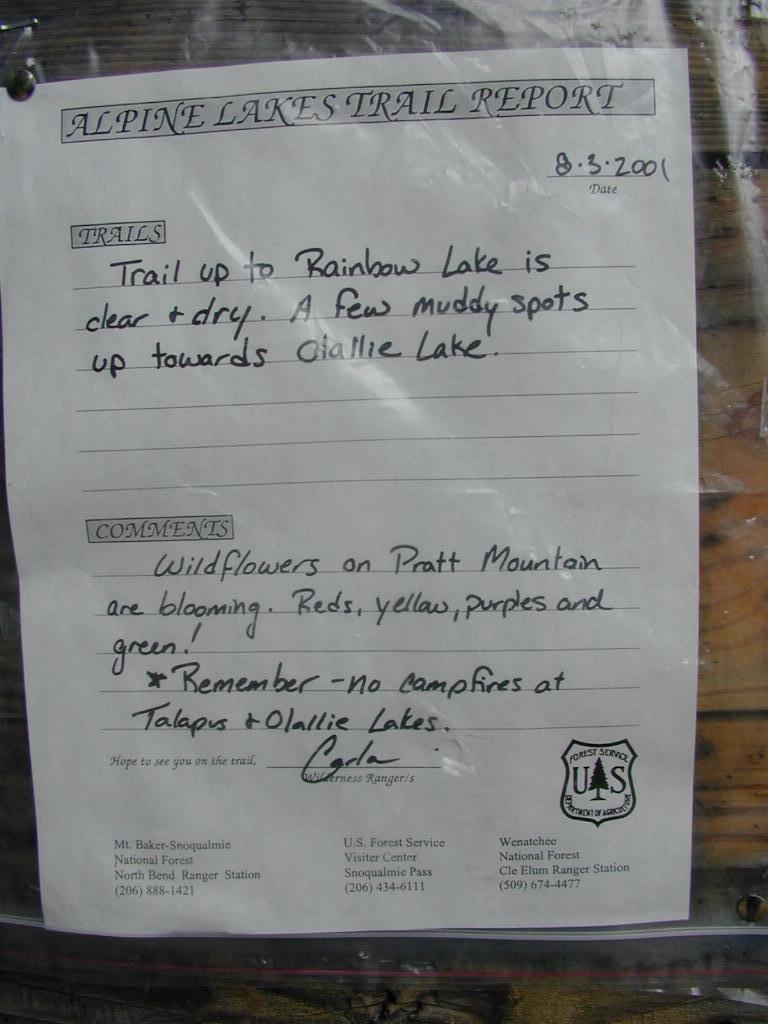 ALPINE LAKES TRAIL REPORT
8.3.2001
Date
TRAILS
Trail up to Rainbow Lake is
clear + dry. A few muddy spots
up towards Olallie Lake.
COMMENTS
Wildflowers on Pratt Mountain
are blooming. Reds, yellow, purples and
green!
* Remember - no campfires at
Talapus + Olallie Lakes.
Hope to see you on the trail, Carla
Wilderness Ranger/s
FOREST SERVICE
U S
DEPARTMENT OF AGRICULTURE
Mt. Baker-Snoqualmie
National Forest
North Bend Ranger Station
(206) 888-1421
U.S. Forest Service
Visiter Center
Snoqualmie Pass
(206) 434-6111
Wenatchee
National Forest
Cle Elum Ranger Station
(509) 674-4477